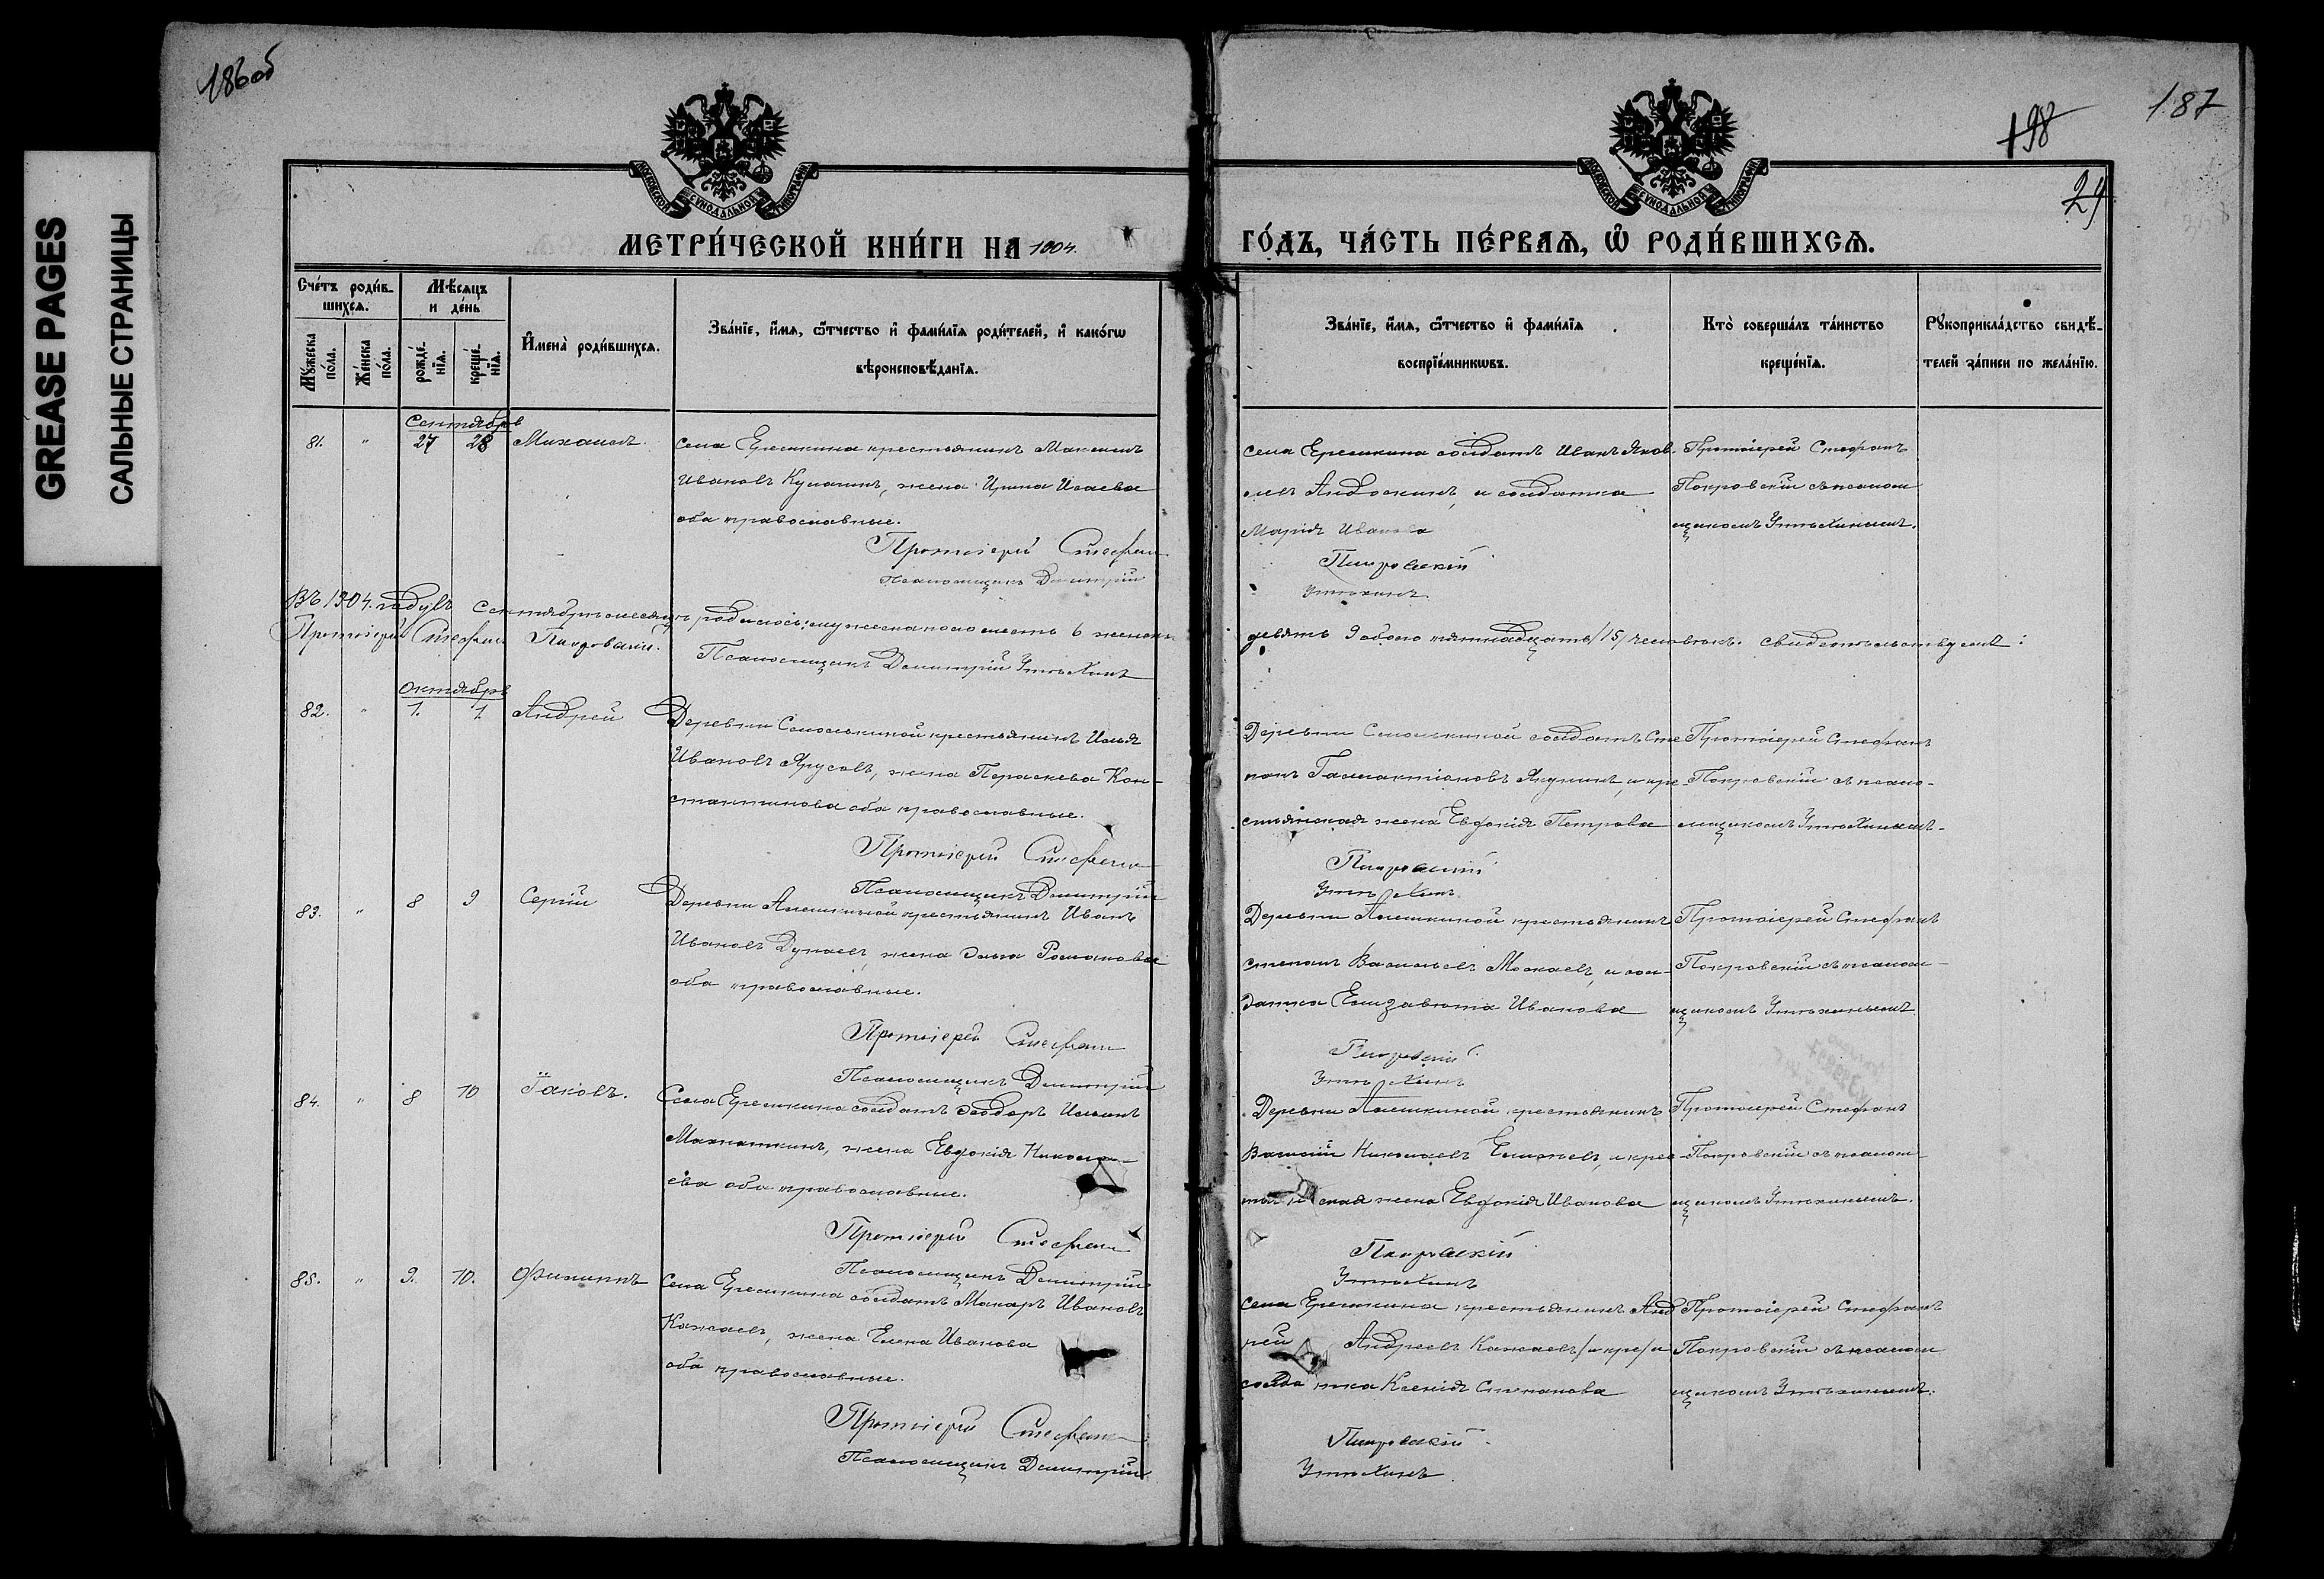 186 об
187
198
24
GREASE PAGES
САЛЬНЫЕ СТРАНИЦЫ
МОСКОВСКОЙ СѴНОДАЛЬНОЙ ТИПОГРАФІИ
МОСКОВСКОЙ СѴНОДАЛЬНОЙ ТИПОГРАФІИ
МЕТРИ́ЧЕСКОЙ КНИ́ГИ НА 1904.
ГО́ДЪ, ЧА́СТЬ ПЕ́РВАѦ, Ѡ҆ РОДИ́ВШИХСѦ.
Сче́тъ роди́в-
шихсѧ.
Мꙋ́жеска по́ла.
Же́нска по́ла.
Мѣ́сѧцъ
и де́нь
рожде́-
нїѧ.
креще́-
нїѧ.
И҆мена̀ роди́вшихсѧ.
Зва́нїе, и҆́мѧ, ѻ҆́тчество и҆ фами́лїѧ роди́телей, и҆ како́гѡ
вѣроисповѣ́данїѧ.
Зва́нїе, и҆́мѧ, ѻ҆́тчество и҆ фами́лїѧ
воспрїе́мникѡвъ.
Кто̀ соверша́лъ та́инство
креще́нїѧ.
Рꙋкоприкла́дство свидѣ́-
телей за́писи по жела́нїю.
Сентябрь
81. " 27 28 Михаилъ.
Села Ерешкина крестьянинъ Максимъ
Ивановъ Кулагинъ, жена Ирина Исаева
оба православные.
Протоіерей Стефанъ
Псаломщикъ Димитрій
села Ерешкина солдатъ Иванъ Яков-
левъ Андоскинъ, и солдатка
Марія Иванова
Покровскій
Утѣхинъ.
Протоіерей Стефанъ
Покровскій съ псалом
щикомъ Утѣхинымъ.
Въ 1904. году въ Сентябрѣ месяцѣ родилось: мужеска пола шесть 6 женска
девять 9 обоего пятнадцать /15/ человѣкъ. свидетельствуемъ:
Протоіерей Стефанъ Покровскій.
Псаломщикъ Димитрій Утѣхинъ
Октябрь
82. " 1. 1. Андрей
Деревни Сенолькиной крестьянинъ Илья
Ивановъ Ярусовъ, жена Параскева Кон-
стантинова оба православные.
Протоіерей Стефанъ
Псаломщикъ Димитрій
Деревни Сенолькиной солдатъ Сте
панъ Галактіоновъ Якунинъ, и кре-
стьянская жена Евдокія Петрова
Покровскій
Утѣхинъ
Протоіерей Стефанъ
Покровскій съ псало-
мщикомъ Утѣхинымъ-
83. " 8 9 Сергій
Деревни Алешкиной крестьянинъ Иванъ
Ивановъ Дунаевъ, жена Ольга Романова
оба православные.
Протоіерей Стефанъ
Псаломщикъ Димитрій
Деревни Алешкиной крестьянинъ
степанъ Васильевъ Мокаевъ, и сол-
датка Елизавета Иванова
Покровскій
Утѣхинъ
Протоіерей Стефанъ
Покровскій съ псалом-
щикомъ Утѣхинымъ
84. " 8 10 Іаковъ.
Села Ерешкина солдатъ Ѳеодоръ Ильинъ
Махнаткинъ, жена Евдокія Никола-
ева оба православные.
Протоіерей Стефанъ
Псаломщикъ Димитрій
Деревни Алешкиной крестьянинъ
Василій Николаевъ, и крес-
тьянская жена Евдокія Иванова
Покровскій
Утѣхинъ
Протоіерей Стефанъ
Покровскій съ псалом-
щикомъ Утѣхинымъ.
85. " 9. 10. Филиппъ
Села Ерешкина солдатъ Макаръ Ивановъ
Кажаевъ, жена Елена Иванова
оба православные.
Протоіерей Стефанъ
Псаломщикъ Димитрій
Села Ерешкина крестьянинъ Анд
рей Андреевъ Кажаевъ /и кре/ и
солдатка Ксенія Степанова
Покровскій
Утѣхинъ
Протоіерей Стефанъ
Покровскій съ псалом
щикомъ Утѣхинымъ.